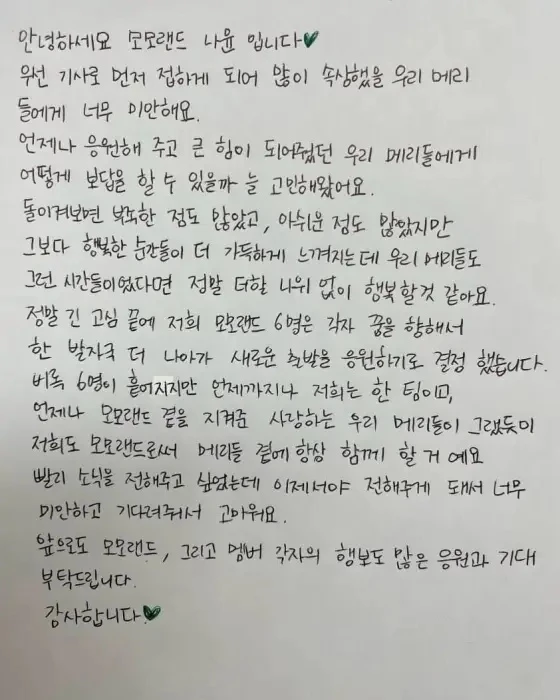 안녕하세요 모모랜드 나윤 입니다♥
우선 기사로 먼저 접하게 되어 많이 속상했을 우리 메리
들에게 너무 미안해요.
언제나 응원해 주고 큰 힘이 되어줬던 우리 메리들에게
어떻게 보답을 할 수 있을까 늘 고민해왔어요.
돌이켜보면 부족한 점도 많았고, 아쉬운 점도 많았지만
그보다 행복한 순간들이 더 가득하게 느껴지는데 우리 메리들도
그런 시간들이였다면 정말 더할 나위 없이 행복할것 같아요.
정말 긴 고심 끝에 저희 모모랜드 6명은 각자 꿈을 향해서
한 발자국 더 나아가 새로운 출발을 응원하기로 결정 했습니다.
비록 6명이 흩어지지만 언제까지나 저희는 한 팀이고,
언제나 모모랜드 곁을 지켜준 사랑하는 우리 메리들이 그랬듯이
저희도 모모랜드로써 메리들 곁에 항상 함께 할 거 예요
빨리 소식을 전해주고 싶었는데 이제서야 전해주게 돼서 너무
미안하고 기다려줘서 고마워요.
앞으로도 모모랜드, 그리고 멤버 각자의 행보도 많은 응원과 기대
부탁드립니다.
감사합니다.♥